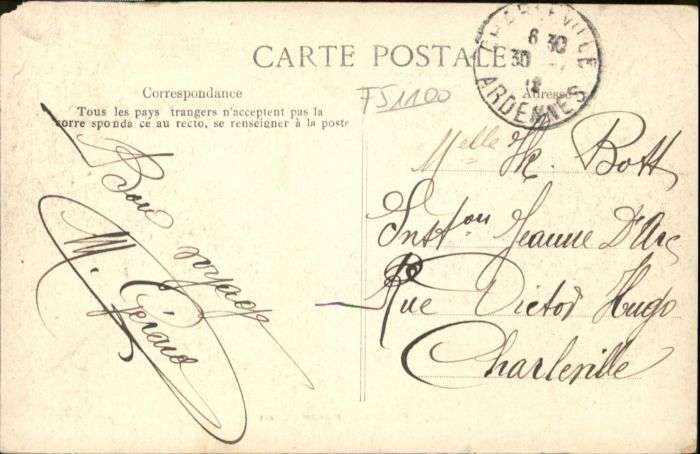 CARTE POSTALE
CHARLEVILLE
6 30
30
ARDENNES
Correspondance
Tous les pays trangers n'acceptent pas la
corre sponda ce au recto, se renseigner à la poste
F51100
Adresse
Bon voyage
M.
Melle M. Bott
Inston Jeanne D'Arc
Rue Victor Hugo
Charleville